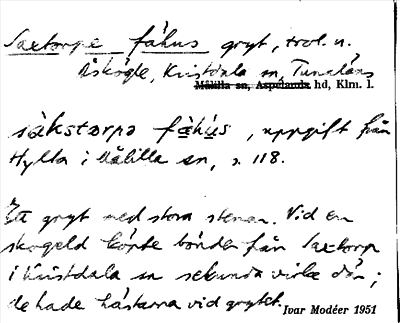 Saxtorpe fähus gryt, trol. u.
Åskögle, Kristdala sn, Tunaläns
Målilla sn, Aspelands hd, Klm. l.
sàkstɑrpə fä̀hùs, uppgift från
Hylta i Målilla sn, s. 118.
Ett gryt med stora stenar. Vid en
skogseld körde bönder från Saxtorp
i Kristdala sn sekunda virke där;
de hade hästarna vid grytet.
Ivar Modéer 1951